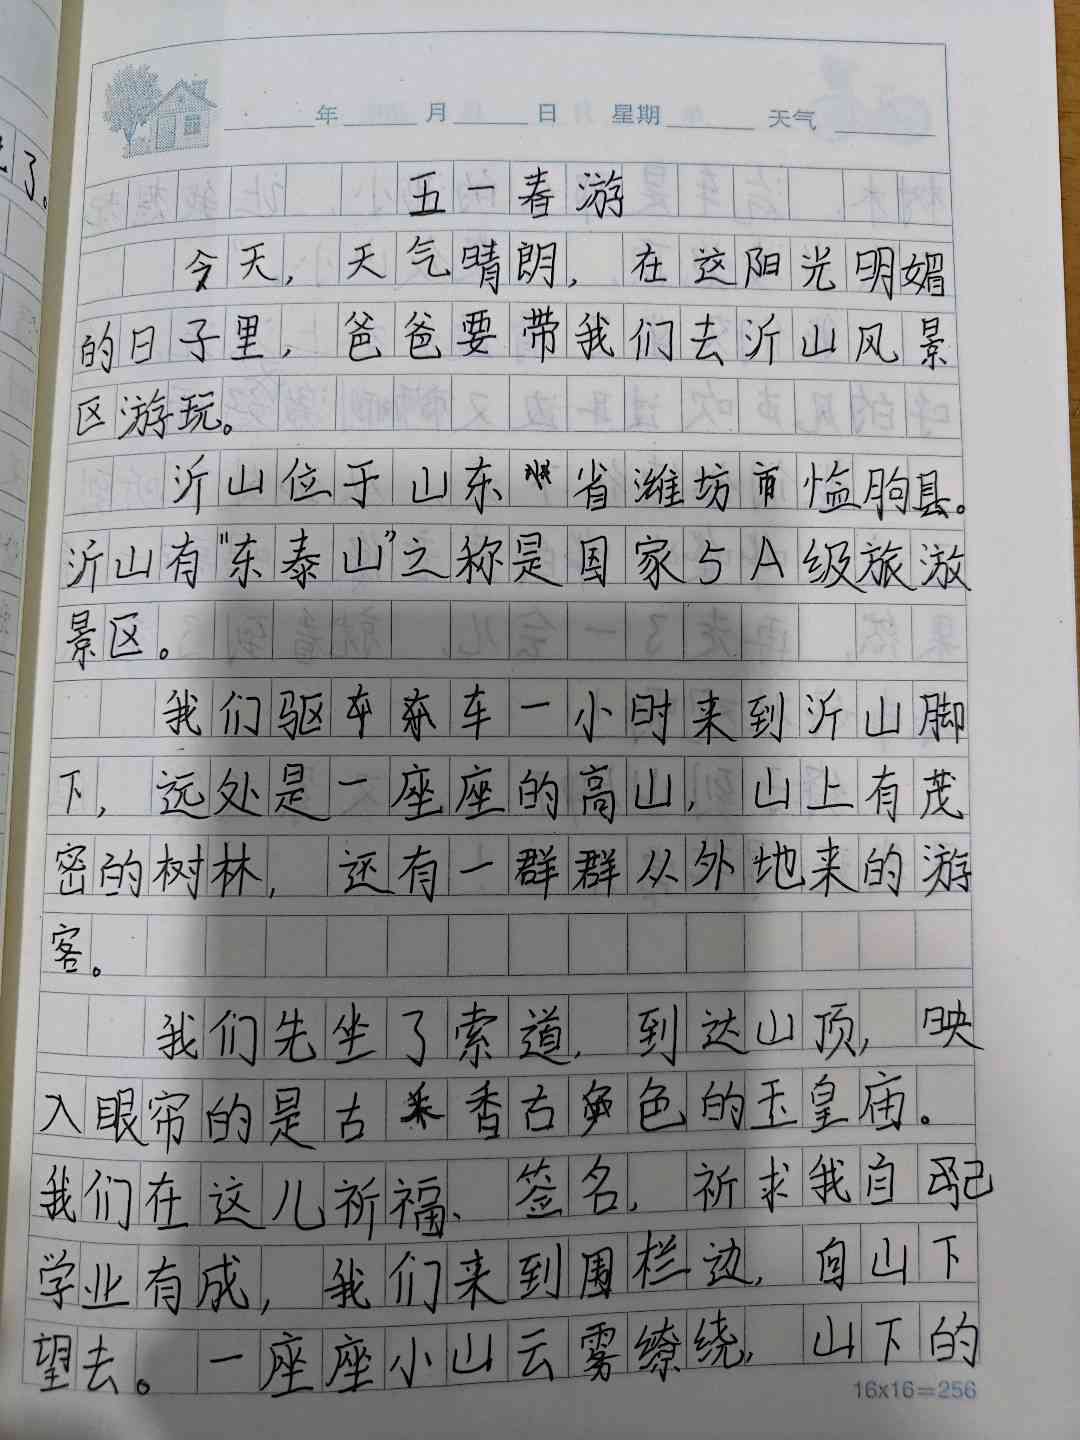 了。
年 月 日 星期 天气
五一春游
今天,天气晴朗,在这阳光明媚
的日子里,爸爸要带我们去沂山风景
区游玩。
沂山位于山东省潍坊市临朐县。
沂山有"东泰山"之称是国家5A级旅游
景区。
我们驱车一小时来到沂山脚
下,远处是一座座的高山,山上有茂
密的树林,还有一群群从外地来的游
客。
我们先坐了索道,到达山顶,映
入眼帘的是古香古色的玉皇庙。
我们在这儿祈福、签名,祈求我自己
学业有成,我们来到围栏边,向山下
望去。一座座小山云雾缭绕,山下的
16x16=256